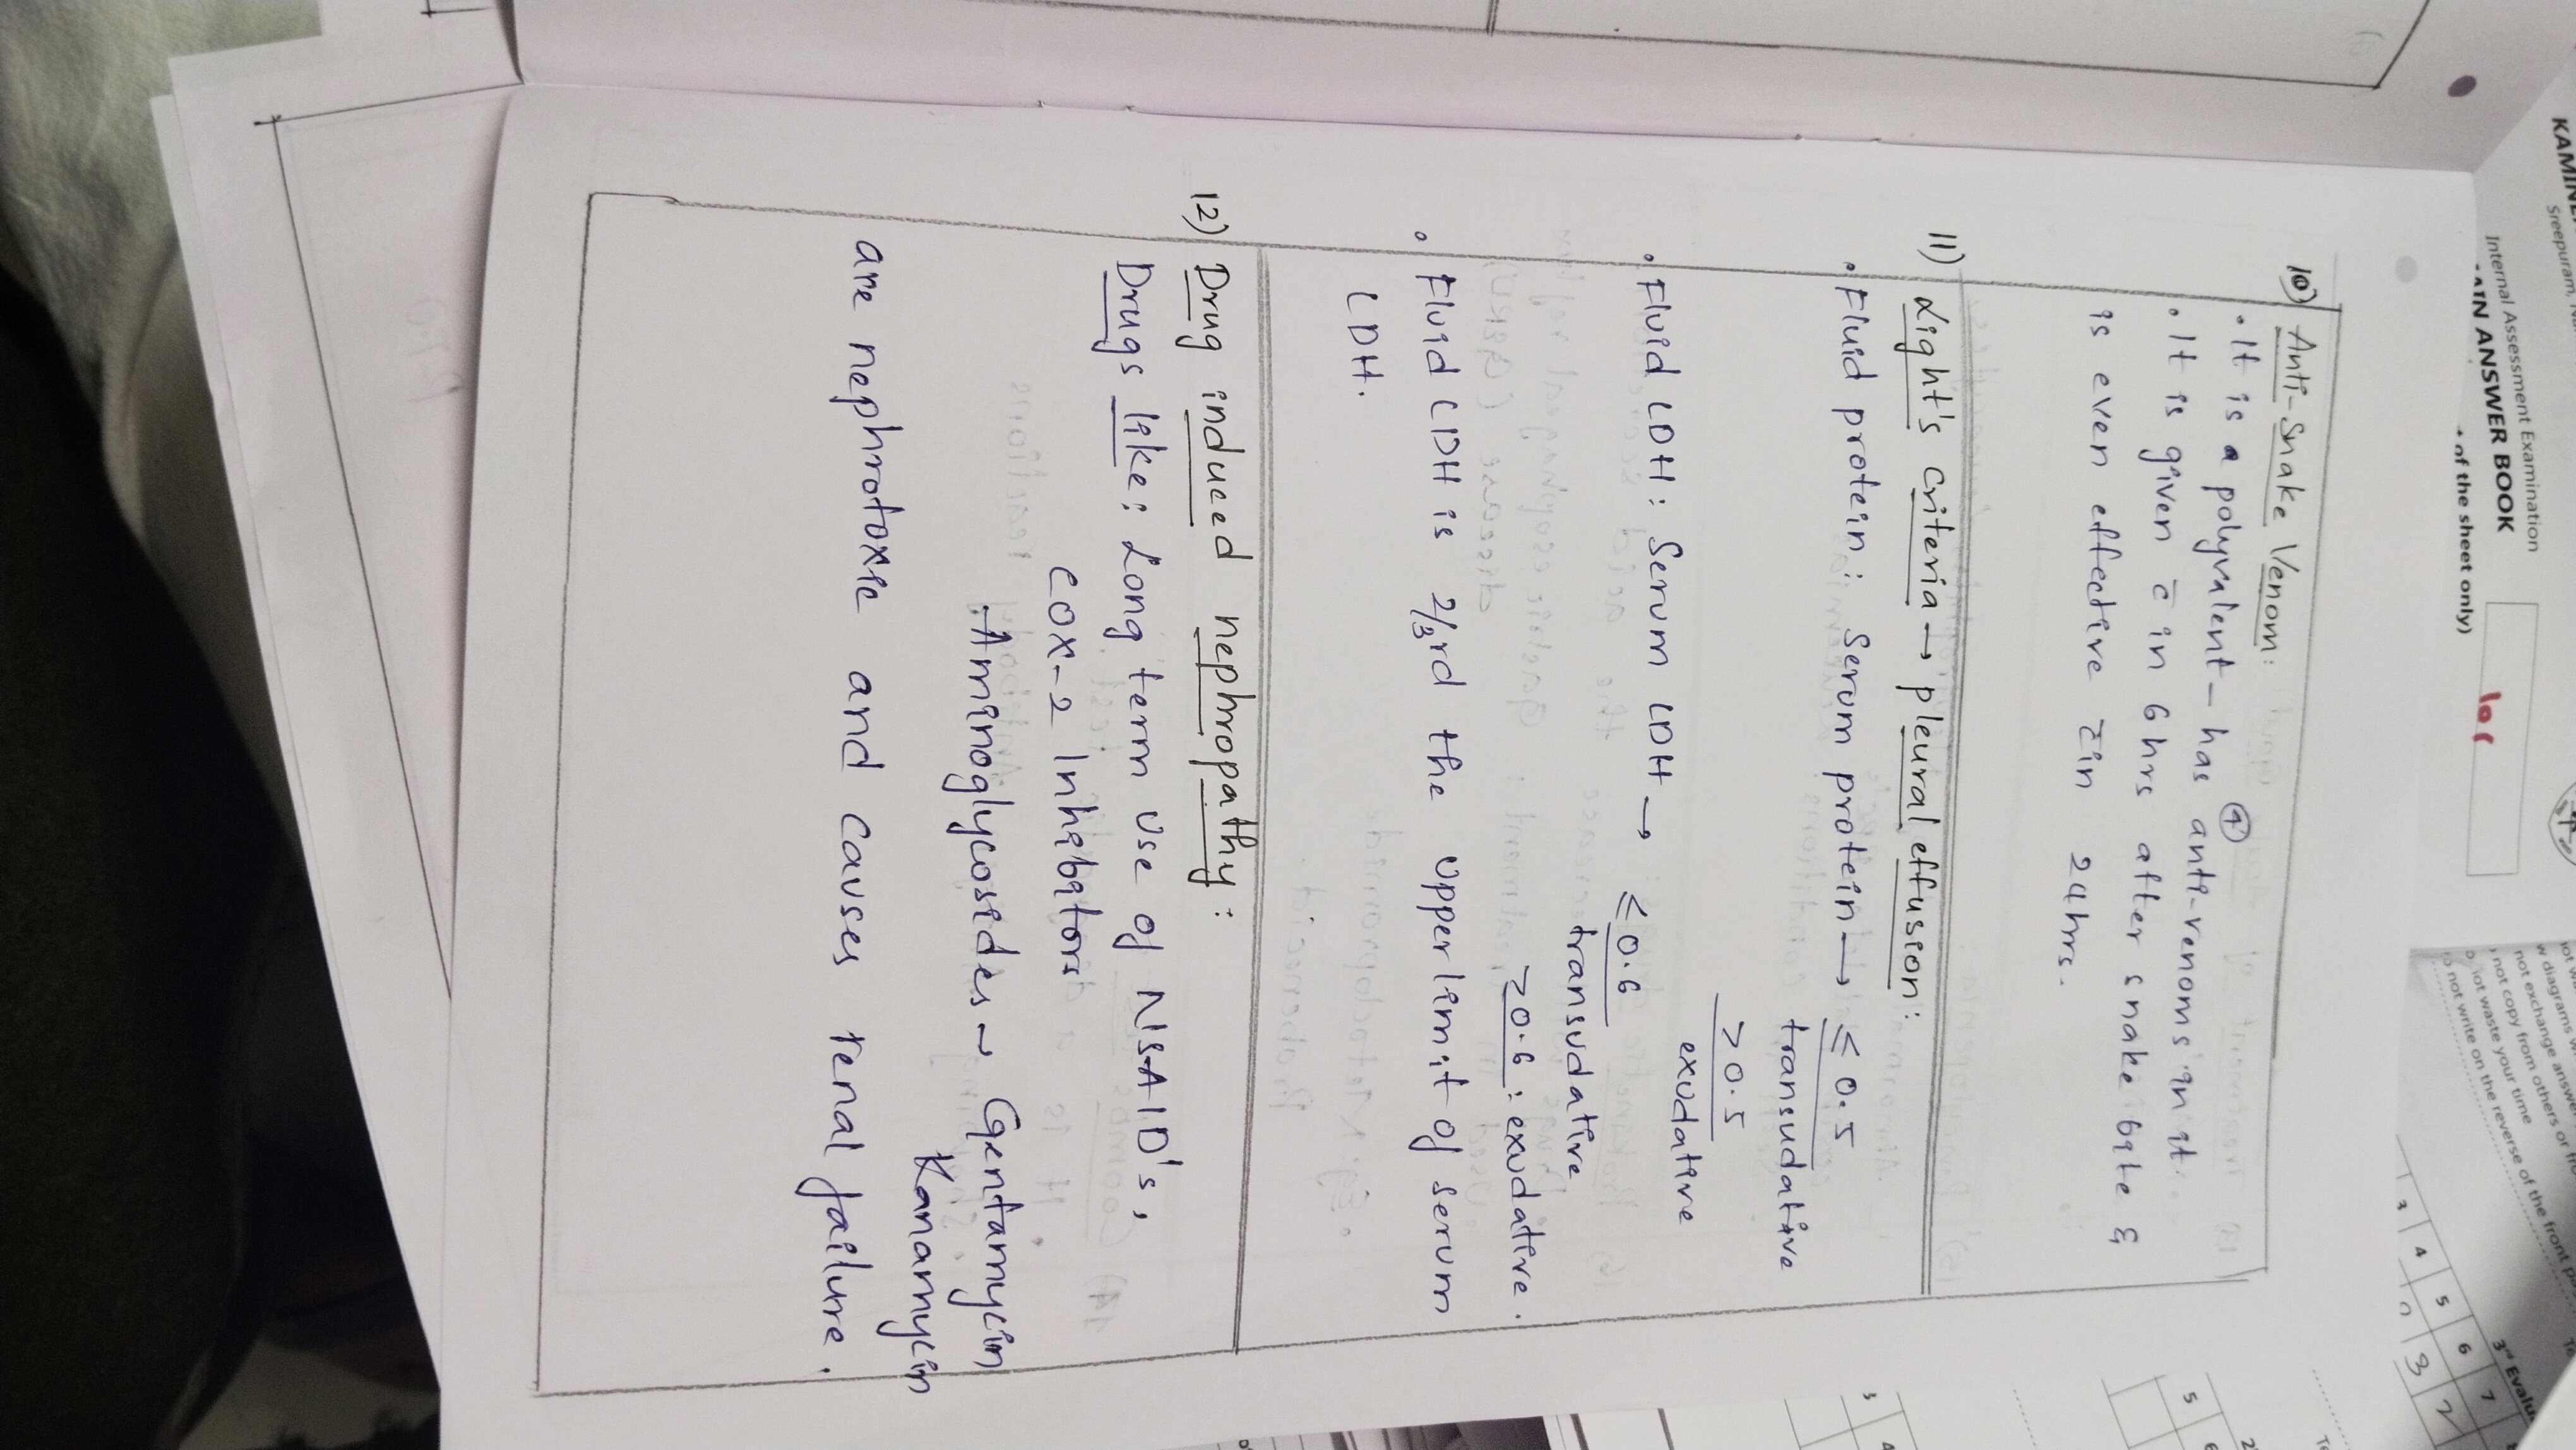 KAMINE
Sreepuram, Na
Internal Assessment Examination
MAIN ANSWER BOOK
of the sheet only)
10) Anti-Snake Venom:
• It is a polyvalent - has ④ anti-venoms in it.
• It is given c̄ in 6 hrs after snake bite &
is even effective c̄in 24hrs.
11) Light's criteria → pleural effusion:
• Fluid protein: Serum protein → ≤ 0.5
transudative
> 0.5
exudative
• Fluid LDH: Serum LDH → ≤ 0.6
transudative
> 0.6 : exudative.
• Fluid LDH is 2/3rd the upper limit of serum
LDH.
12) Drug induced nephropathy:
Drugs like: Long term use of NSAID's,
COX-2 Inhibitors
Aminoglycosides → Gentamycin
Kanamycin
are nephrotoxic and causes renal failure.
not exchange answe
not copy from others or
not waste your time
not write on the reverse of the front p
3rd Evalu
3 4 5 6 7
3 2